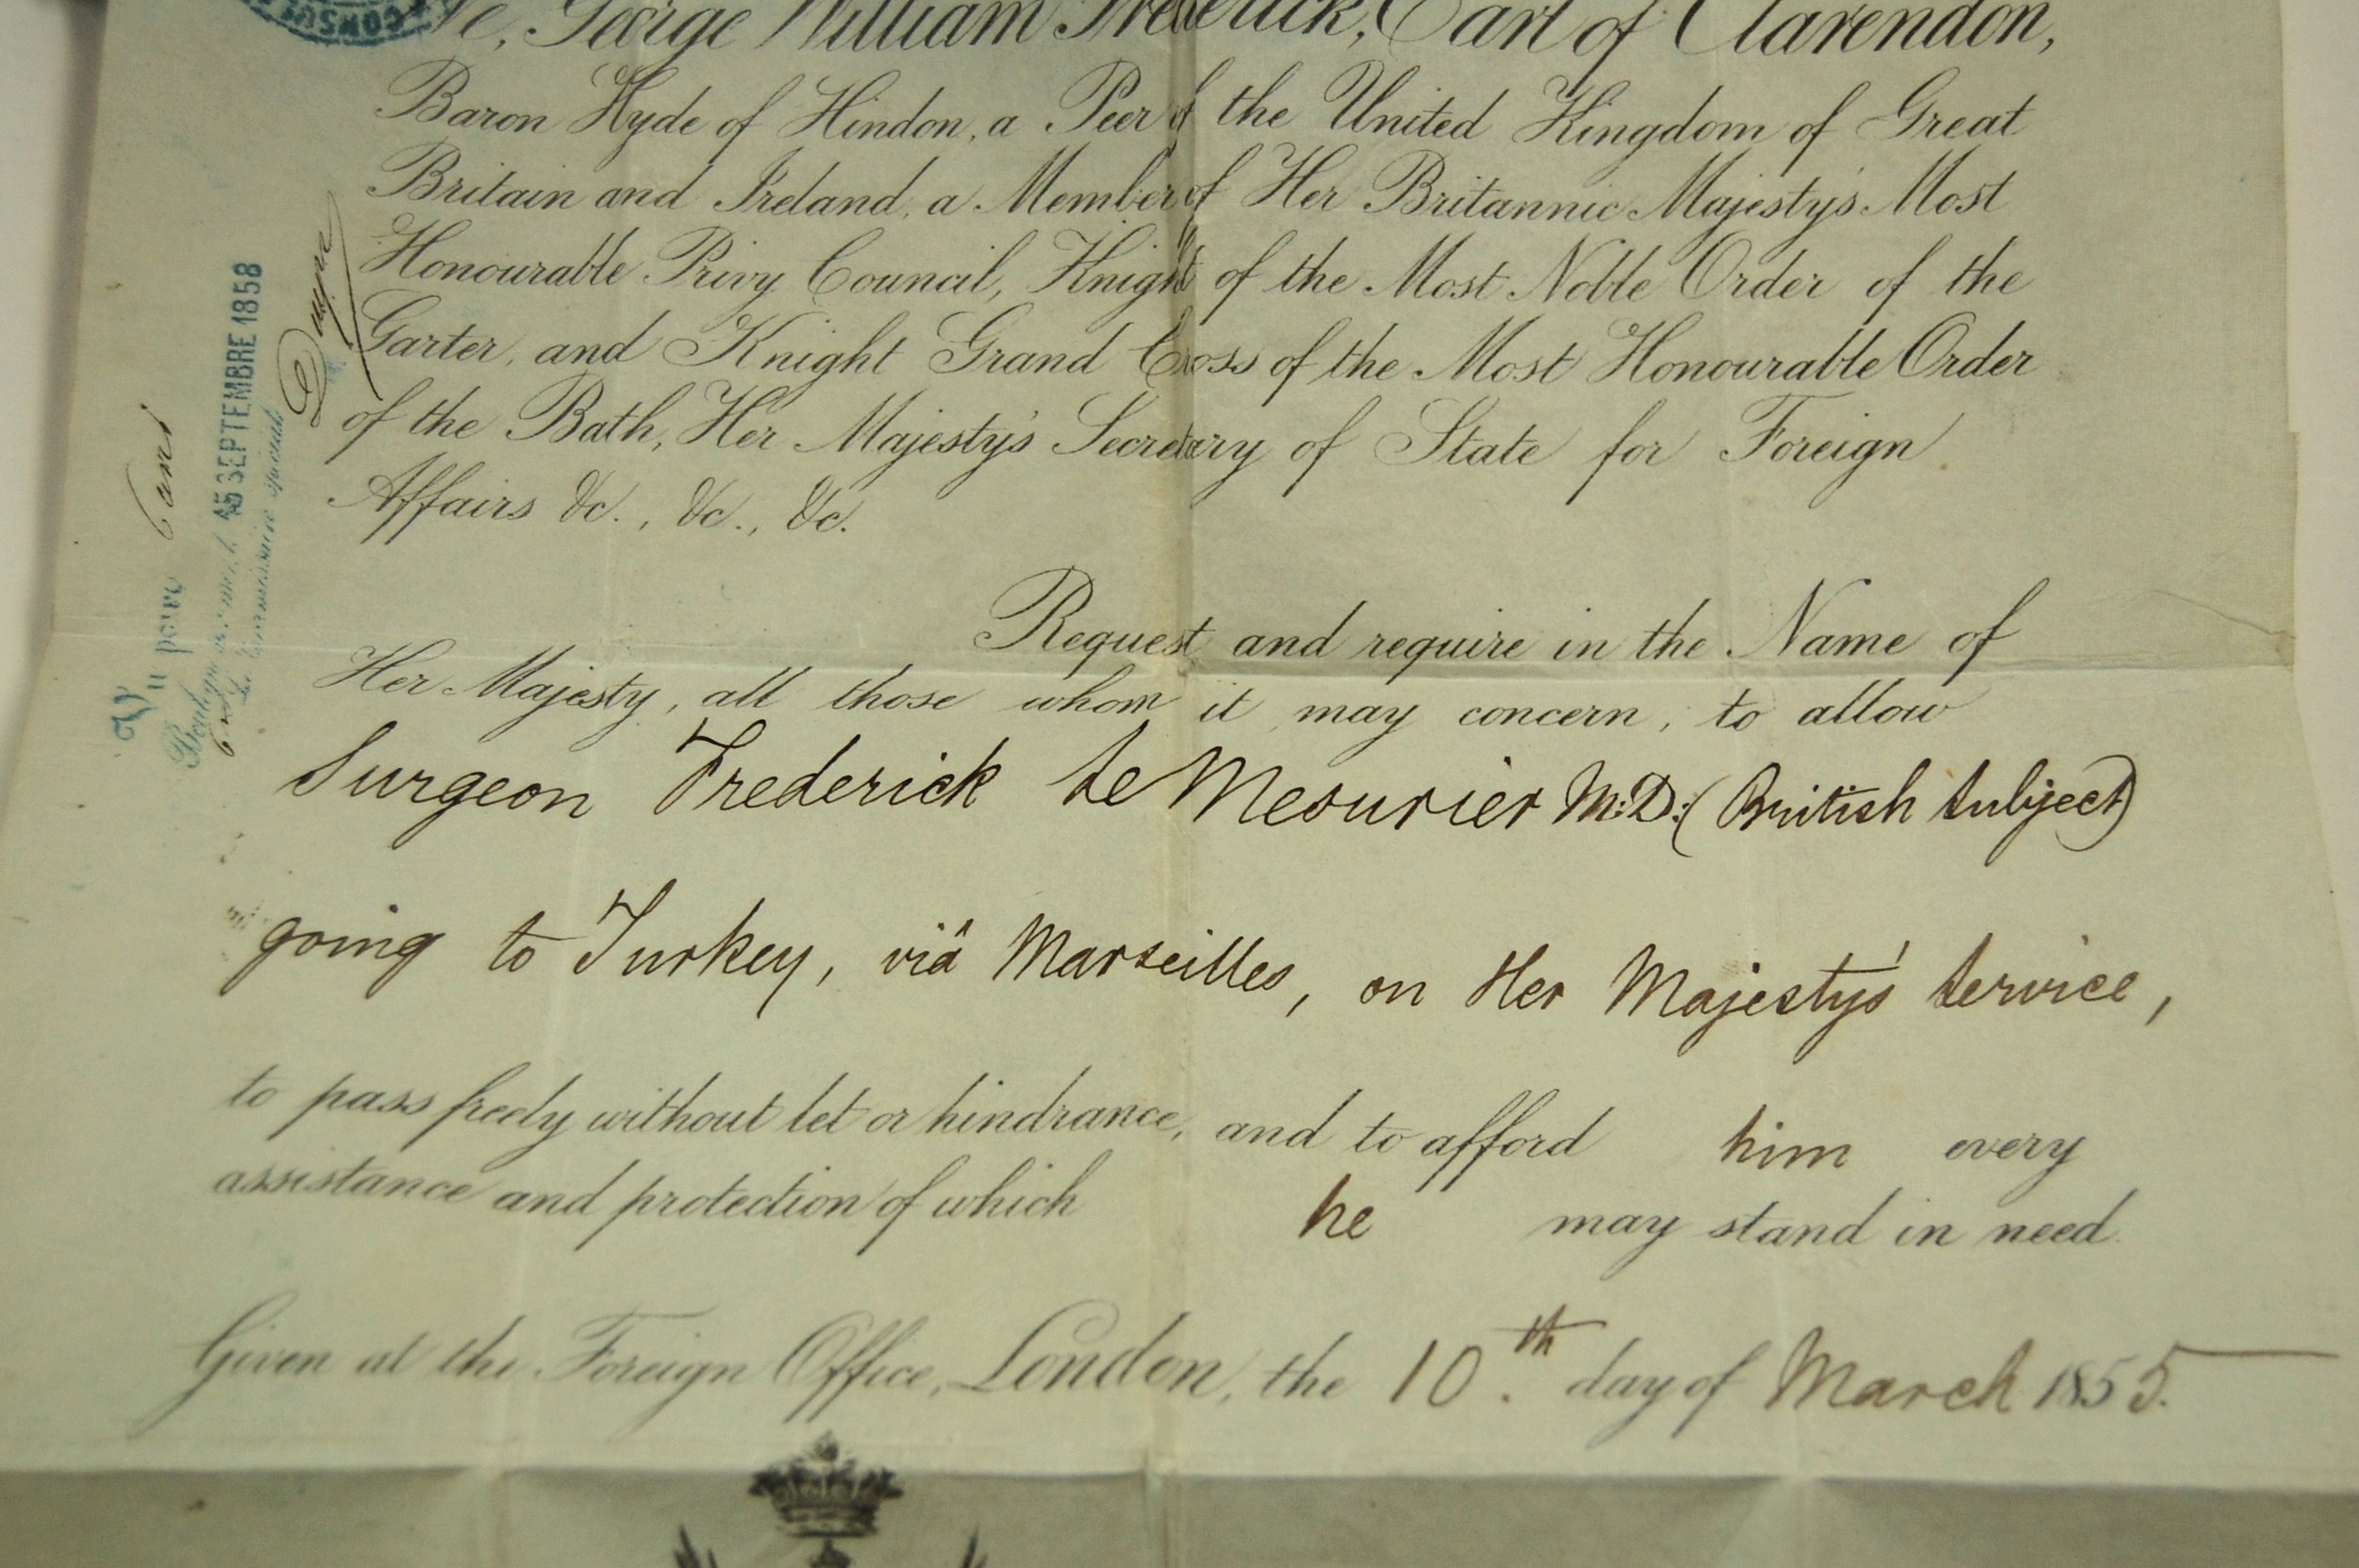 We, George William Frederick, Earl of Clarendon,
Baron Hyde of Hindon, a Peer of the United Kingdom of Great
Britain and Ireland, a Member of Her Britannic Majesty's Most
Honourable Privy Council, Knight of the Most Noble Order of the
Garter, and Knight Grand Cross of the Most Honourable Order
of the Bath, Her Majesty's Secretary of State for Foreign
Affairs &c., &c., &c.
Request and require in the Name of
Her Majesty, all those whom it may concern, to allow
Surgeon Frederick Le Mesurier M:D: (British Subject)
going to Turkey, viâ Marseilles, on Her Majesty's Service,
to pass freely without let or hindrance, and to afford him every
assistance and protection of which he may stand in need.
Given at the Foreign Office, London, the 10th. day of March 1855.
CONSUL
Vu pour
15 SEPTEMBRE 1858
Le Commissaire spécial